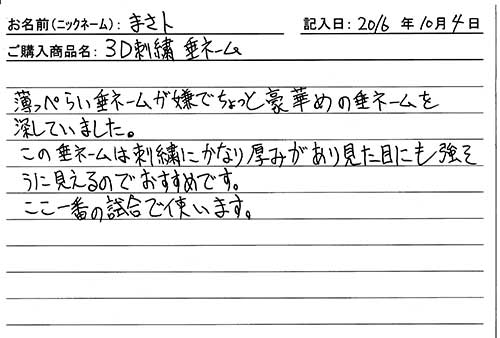 お名前(ニックネーム): まさト 記入日: 2016 年 10月 4日
ご購入商品名: 3D刺繍 垂ネーム
薄っぺらい垂ネームが嫌でちょっと豪華めの垂ネームを
深していました。
この垂ネームは刺繍にかなり厚みがあり見た目にも強そ
うに見えるのでおすすめです。
ここ一番の試合で使います。